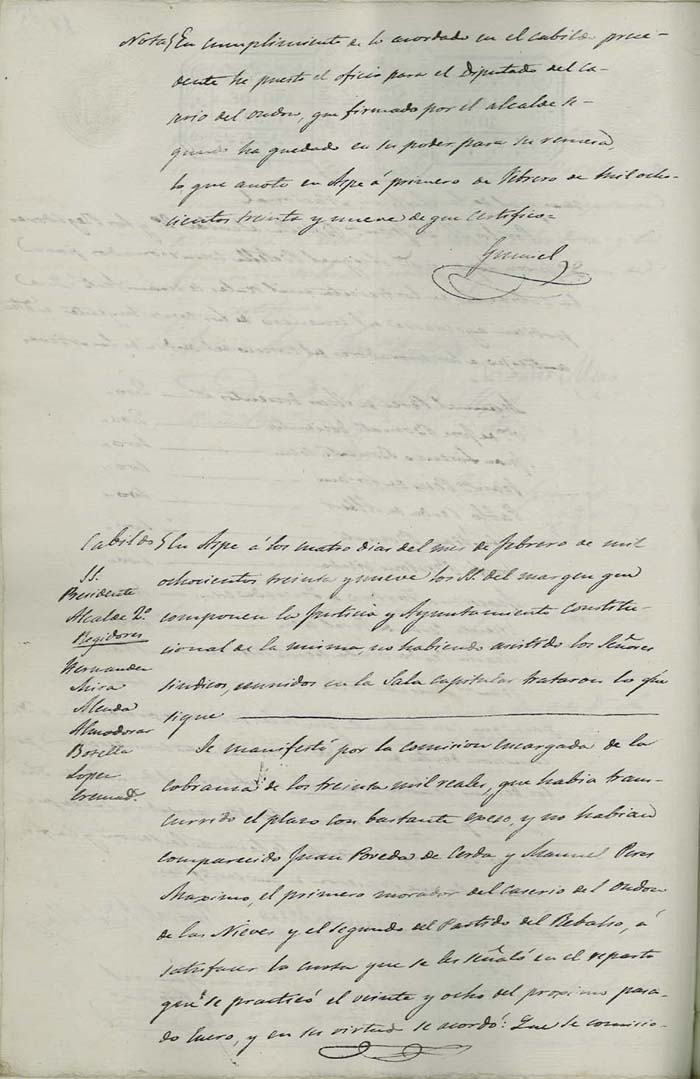 Nota § En cumplimiento de lo acordado en el cabildo prece-
dente he puesto el oficio para el Diputado del Ca-
serio del Ondon, que firmado por el alcalde se-
gundo ha quedado en su poder para su remesa
lo que anoto en Aspe á primero de Febrero de mil ocho-
cientos treinta y nueve de que certifico=
Cabildo § En Aspe á los cuatro dias del mes de febrero de mil
SS.
ochocientos treinta y nueve los SS. del margen que
Presidente
Alcalde 2º
componen la Justicia y Ayuntamiento constitu-
Regidores
cional de la misma, no habiendo asistido los Señores
Hernandez
Mira
Sindicos, reunidos en la Sala capitular trataron lo que
Almodovar
sigue
Botella
Se manifestó por la comision encargada de la
Lopez
cobranza de los treinta mil reales, que habia trans-
Cremad.s
currido el plazo con bastante eceso, y no habian
comparecido Juan Poveda de Cerda y Manuel Peres
Maximo, el primero morador del caserio del Ondon
de las Nieves y el segundo del Partido del Rebalso, á
satisfacer la cuota que se les señaló en el reparto
que se practicó el veinte y ocho del proximo pasa-
do Enero, y en su virtud se acordó: Que se comisio-